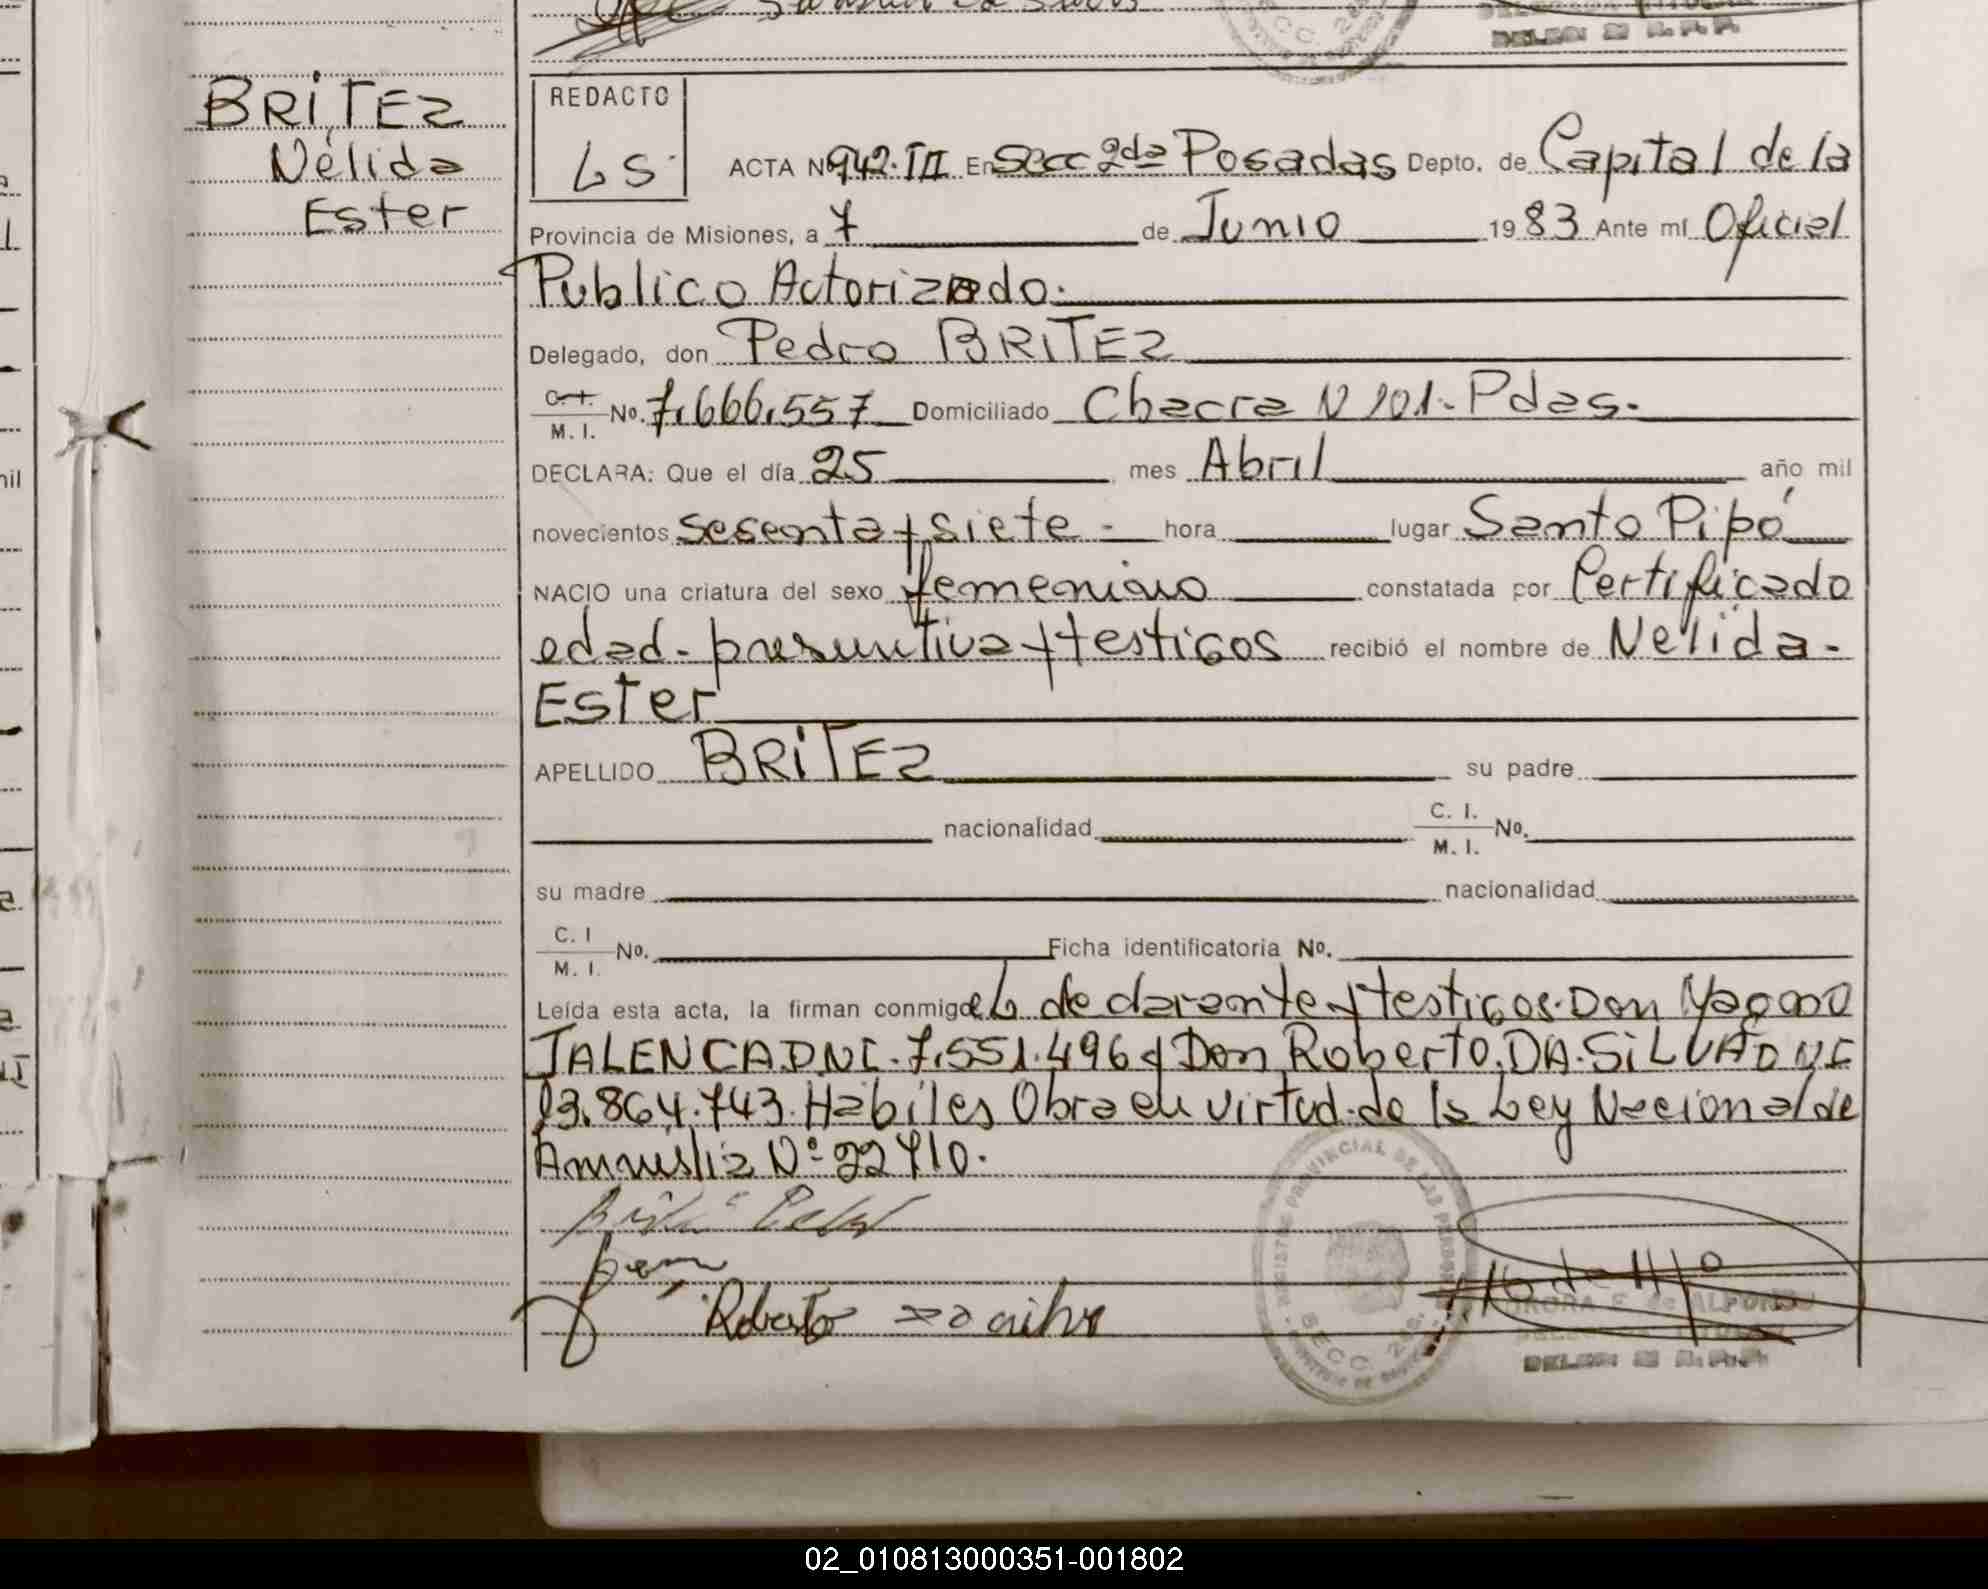 BRITEZ
Nélida
Ester
REDACTO
LS
ACTA Nº 942·III En Secc 2da Posadas Depto. de Capital de la
Provincia de Misiones, a 7 de Junio 1983 Ante mí Oficial
Publico Autorizado.
Delegado, don Pedro BRITEZ
C. I. M. I. No. 7.666.557 Domiciliado Chacra N 101 - Pdas.
DECLARA: Que el día 25 mes Abril año mil
novecientos sesenta y siete - hora lugar Santo Pipó
NACIO una criatura del sexo femenino constatada por Certificado
edad - presuntiva y testigos recibió el nombre de Nelida -
Ester
APELLIDO BRITEZ su padre
nacionalidad C. I. M. I. No.
su madre nacionalidad
C. I M. I. No. Ficha identificatoria No.
Leída esta acta, la firman conmigo el declarante y testigos Don
JALENCA DNI. 7.551.496 y Don Roberto DA SILVA DNI
13.864.743. Habiles Obra en virtud de la Ley Nacional de
Amnistia Nº 22410.
Roberto
REGISTRO PROVINCIAL DE LAS PERSONAS
SECC. 2da.
F. de ALFONSO
DELEGADA TITULAR
DELEG. R.P.P.
02_010813000351-001802